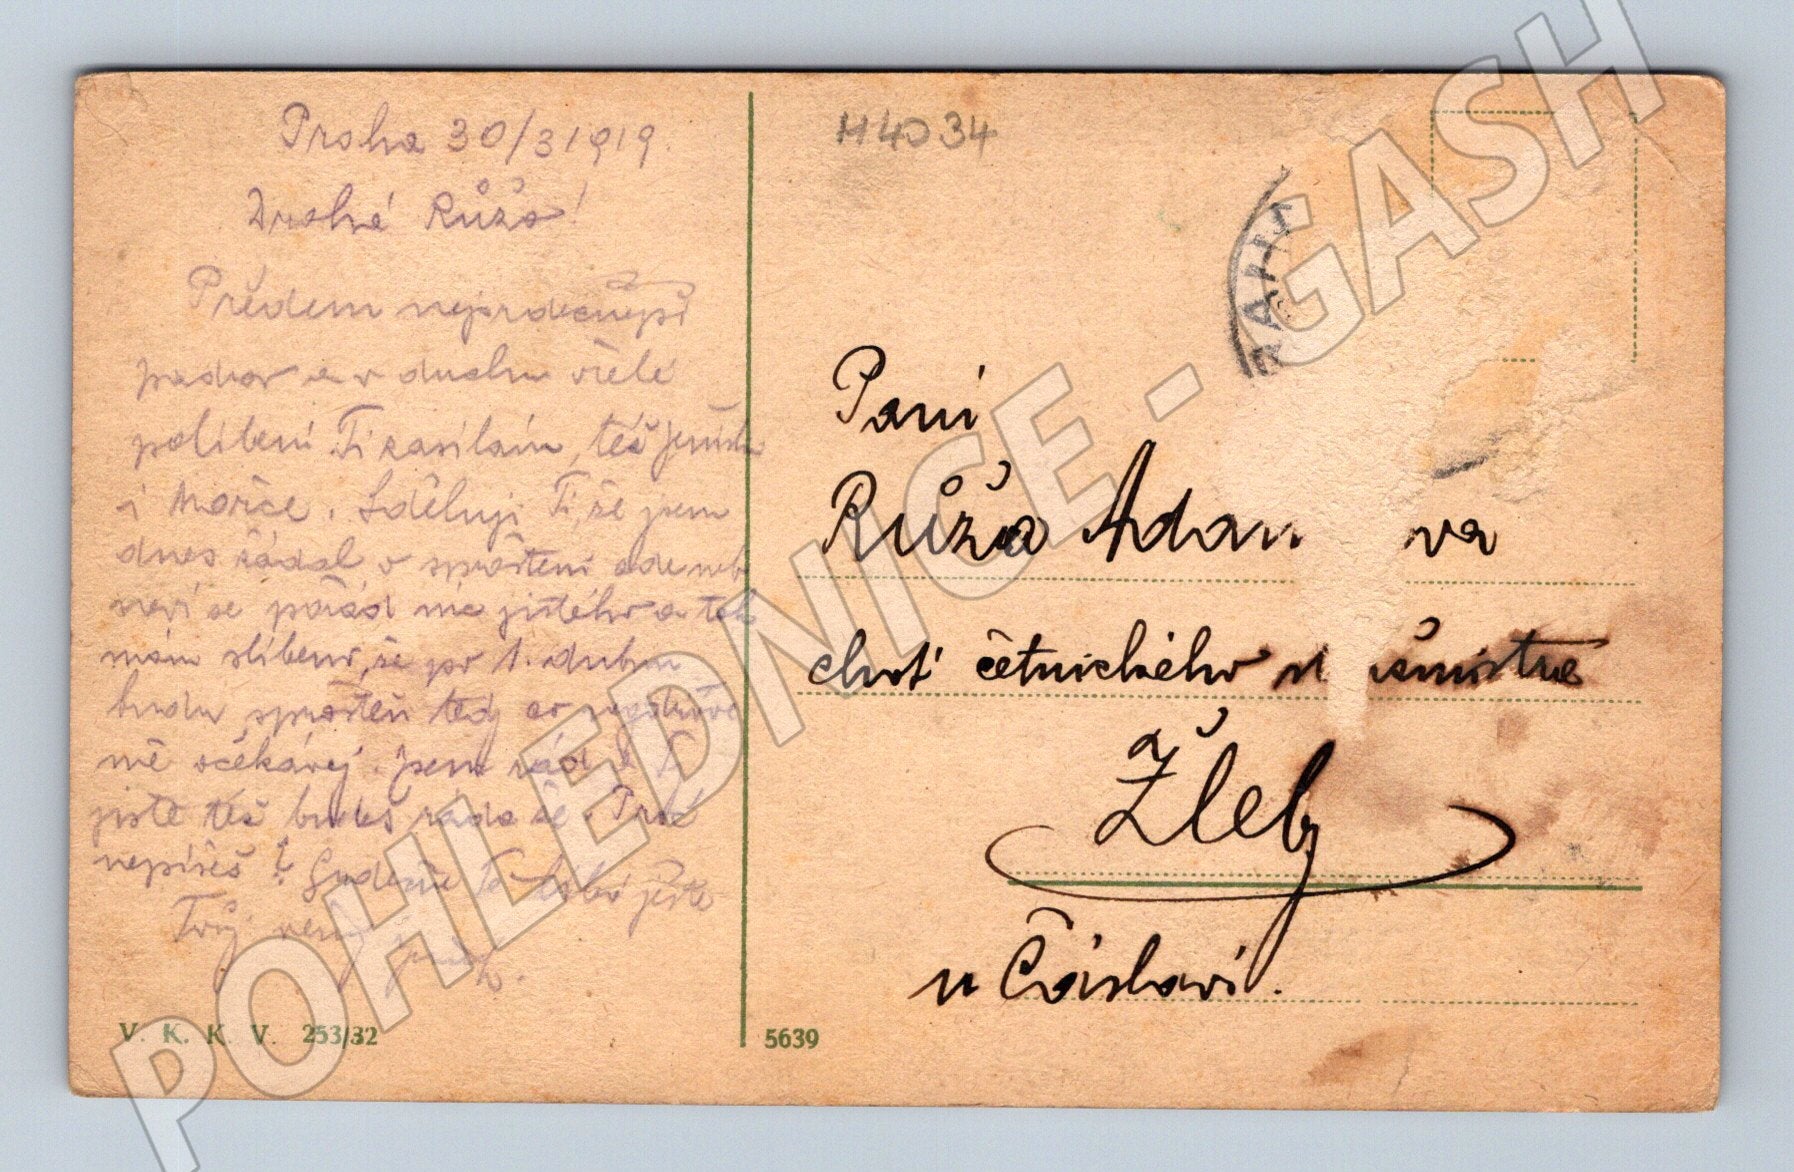 Praha 30/3 1919.
Drahá Růžo!
Předem nejsrdečnejší
pozdrav a v duchu vřelé
políbení Ti zasílám, též
i Mařce. Sděluji Ti, že jsem
dnes žádal o sproštění ale
neví se pořád nic jistého a tak
mám slíbeno, že po 1. dubnu
budu sproštěn tedy
mě očekávej. Jsem rád
jistě též budeš ráda že. Proč
nepíšeš?
Tvůj věrný
V. K. K. V. 253/32
5639
M4034
Paní
Růža Adam va
choť četnického
Žleby
u Čáslavi.
POHLEDNICE - GASH